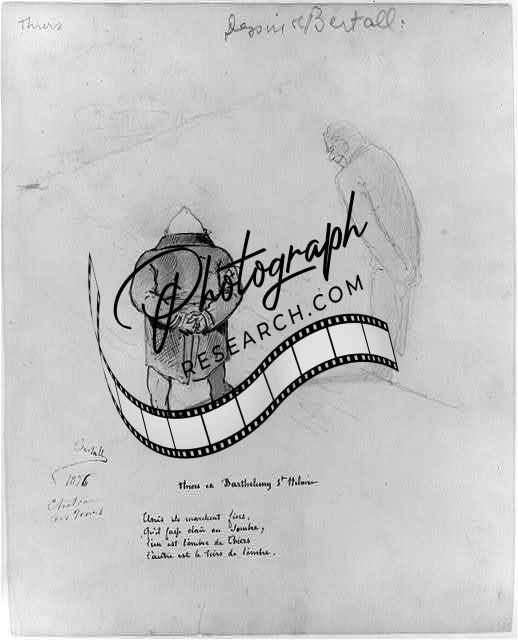 Thiers
Dessin de Bertall:
Photograph
RESEARCH.COM
Bertall
1876
Thiers et Barthelemy St Hilaire
Unis ils marchent fiers,
Qu'il fasse clair ou sombre,
l'un est l'ombre de Thiers
l'autre est le tiers de l'ombre.